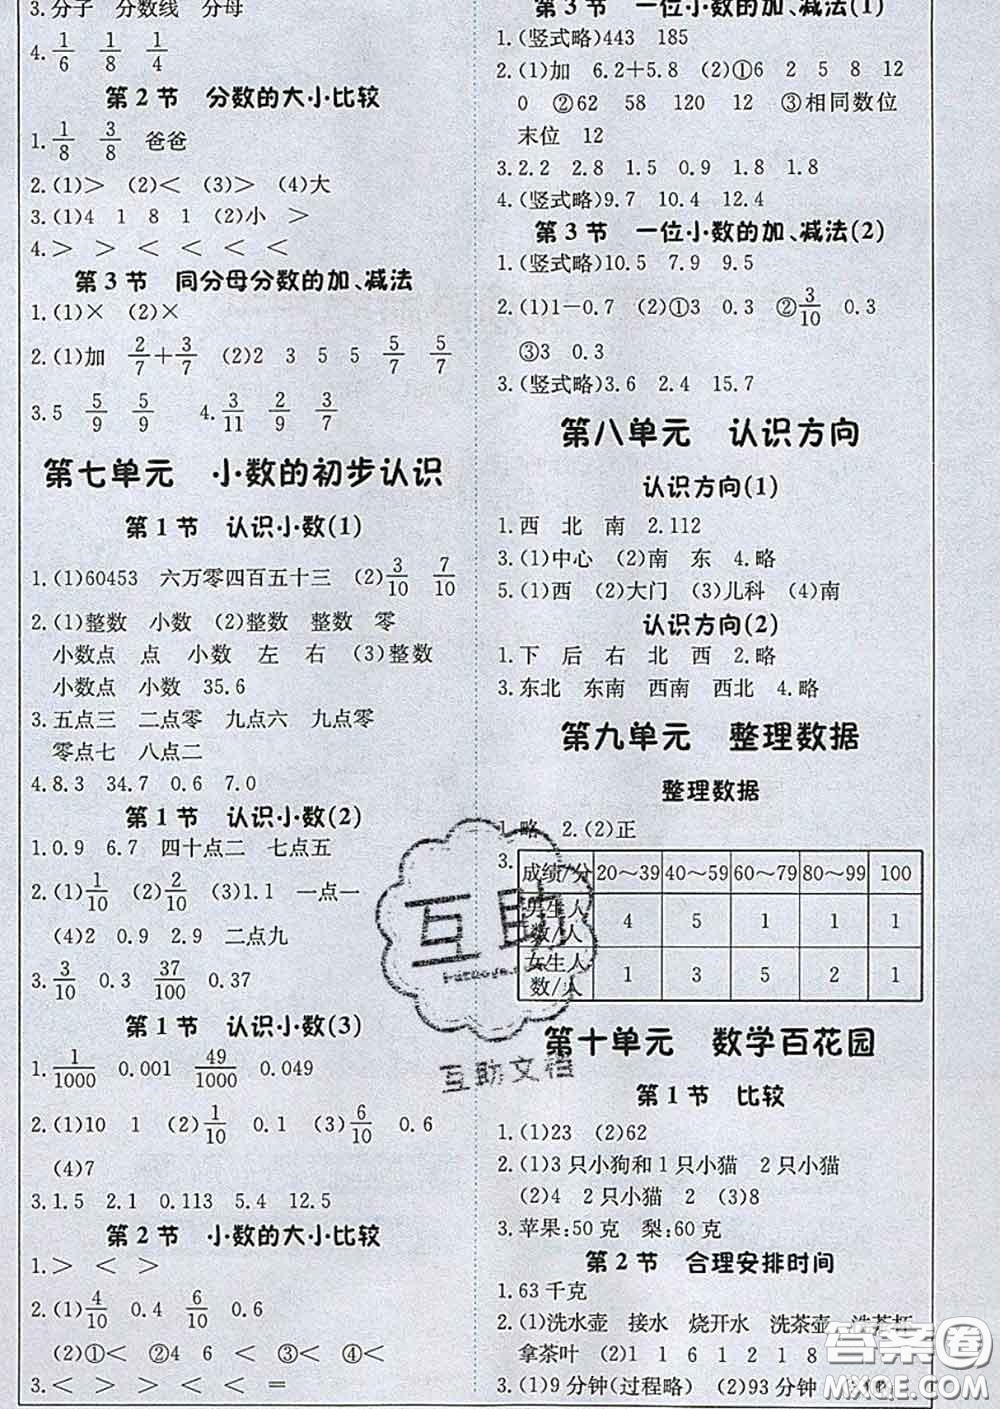 3.分子 分数线 分母
4. 1/6 1/8 1/4
第2节 分数的大小比较
1. 1/8 3/8 爸爸
2.(1)> (2)< (3)> (4)大
3.(1)4 1 8 1 (2)小 >
4.> > < < < <
第3节 同分母分数的加、减法
1.(1)× (2)×
2.(1)加 2/7+3/7 (2)2 3 5 5 5/7 5/7
3.5 5/9 5/9 4. 3/11 2/9 3/7
第七单元 小数的初步认识
第1节 认识小数(1)
1.(1)60453 六万零四百五十三 (2)3/10 7/10
2.(1)整数 小数 (2)整数 整数 零
小数点 点 小数 左 右 (3)整数
小数点 小数 35.6
3.五点三 二点零 九点六 九点零
零点七 八点二
4.8.3 34.7 0.6 7.0
第1节 认识小数(2)
1.0.9 6.7 四十点二 七点五
2.(1)1/10 (2)2/10 (3)1.1 一点一
(4)2 0.9 2.9 二点九
3. 3/10 0.3 37/100 0.37
第1节 认识小数(3)
1. 1/1000 0.001 49/1000 0.049
2.(1)10 1 (2)1/10 0.1 (3)6/10 0.6
(4)7
3.1.5 2.1 0.113 5.4 12.5
第2节 小数的大小比较
1.> < >
2.(1)4/10 0.4 6/10 0.6 <
(2)①< ②4 6 < ③< ④<
3.< > > < < =
第3节 一位小数的加、减法(1)
1.(竖式略)443 185
2.(1)加 6.2+5.8 (2)①6 2 5 8 12
0 ②62 58 120 12 ③相同数位
末位 12
3.2.2 2.8 1.5 0.9 1.8 1.8
4.(竖式略)9.7 10.4 12.4
第3节 一位小数的加、减法(2)
1.(竖式略)10.5 7.9 9.5
2.(1)1-0.7 (2)①3 0.3 ②3/10 0.3
③3 0.3
3.(竖式略)3.6 2.4 15.7
第八单元 认识方向
认识方向(1)
1.西 北 南 2.112
3.(1)中心 (2)南 东 4.略
5.(1)西 (2)大门 (3)儿科 (4)南
认识方向(2)
1.下 后 右 北 西 2.略
3.东北 东南 西南 西北 4.略
第九单元 整理数据
整理数据
1.略 2.(2)正
3.
成绩/分 20～39 40～59 60～79 80～99 100
男生人数/人 4 5 1 1 1
女生人数/人 1 3 5 2 1
第十单元 数学百花园
第1节 比较
1.(1)23 (2)62
2.(1)3只小狗和1只小猫 2只小猫
(2)4 2只小猫 2 (3)8
3.苹果:50克 梨:60克
第2节 合理安排时间
1.63千克
2.(1)洗水壶 接水 烧开水 洗茶壶 洗茶杯
拿茶叶 (2)1 1 6 1 2 1 8
3.(1)9分钟(过程略) (2)93分钟
互助
互助文档
答案圈